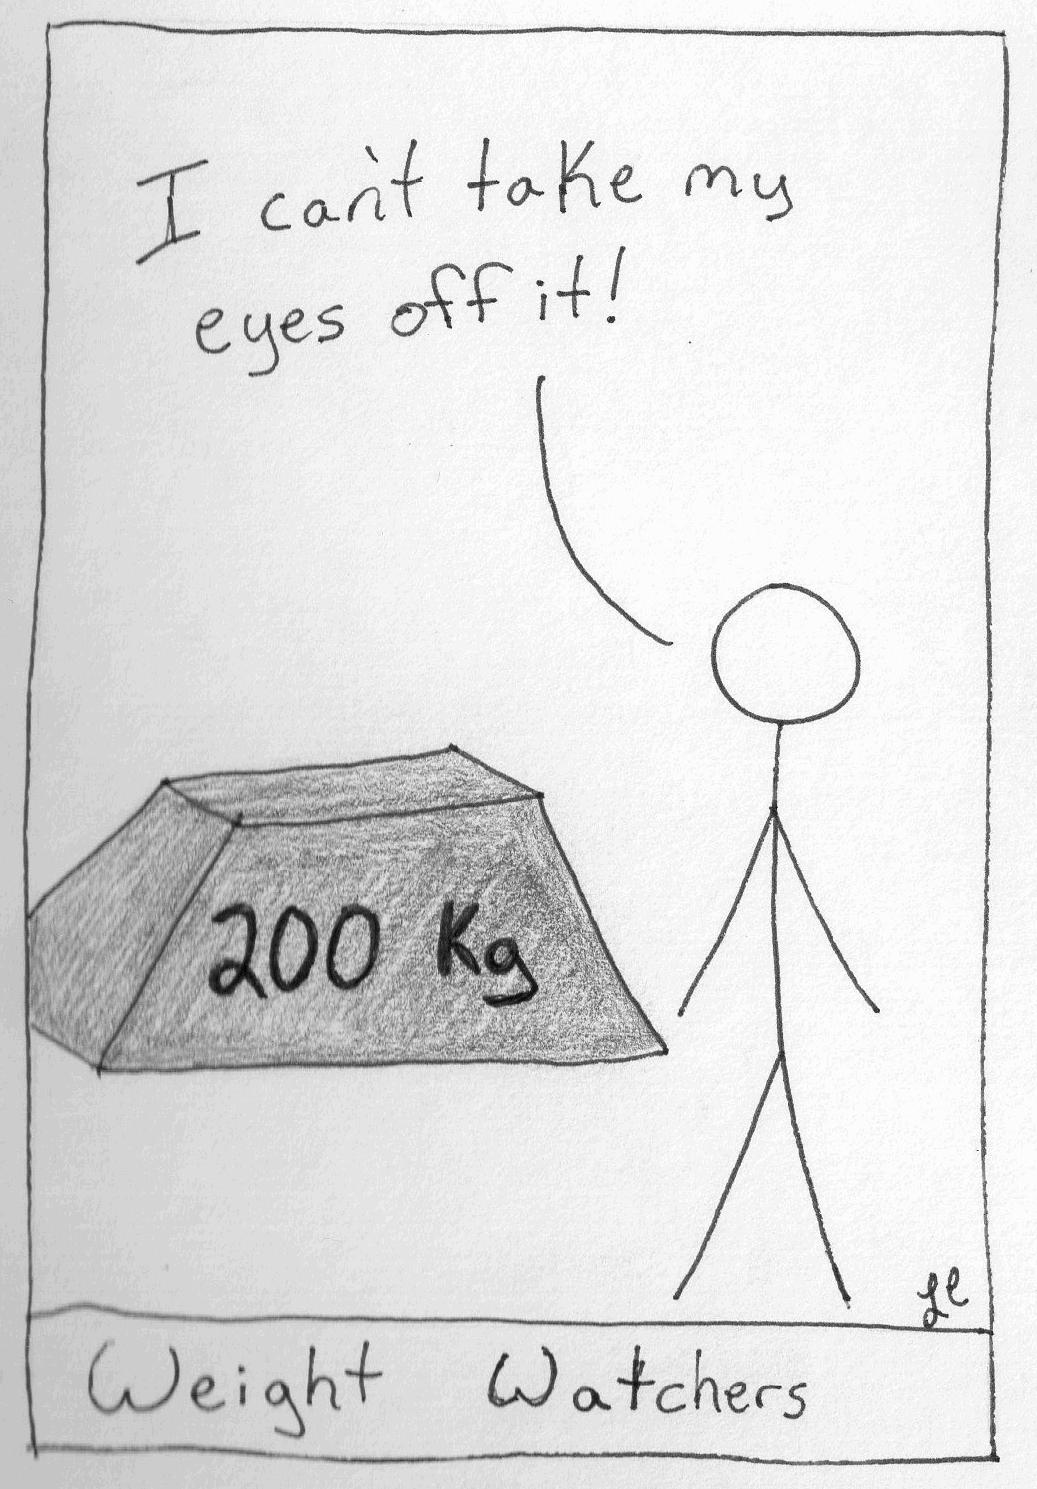 I can't take my
eyes off it!
200 Kg
Weight Watchers